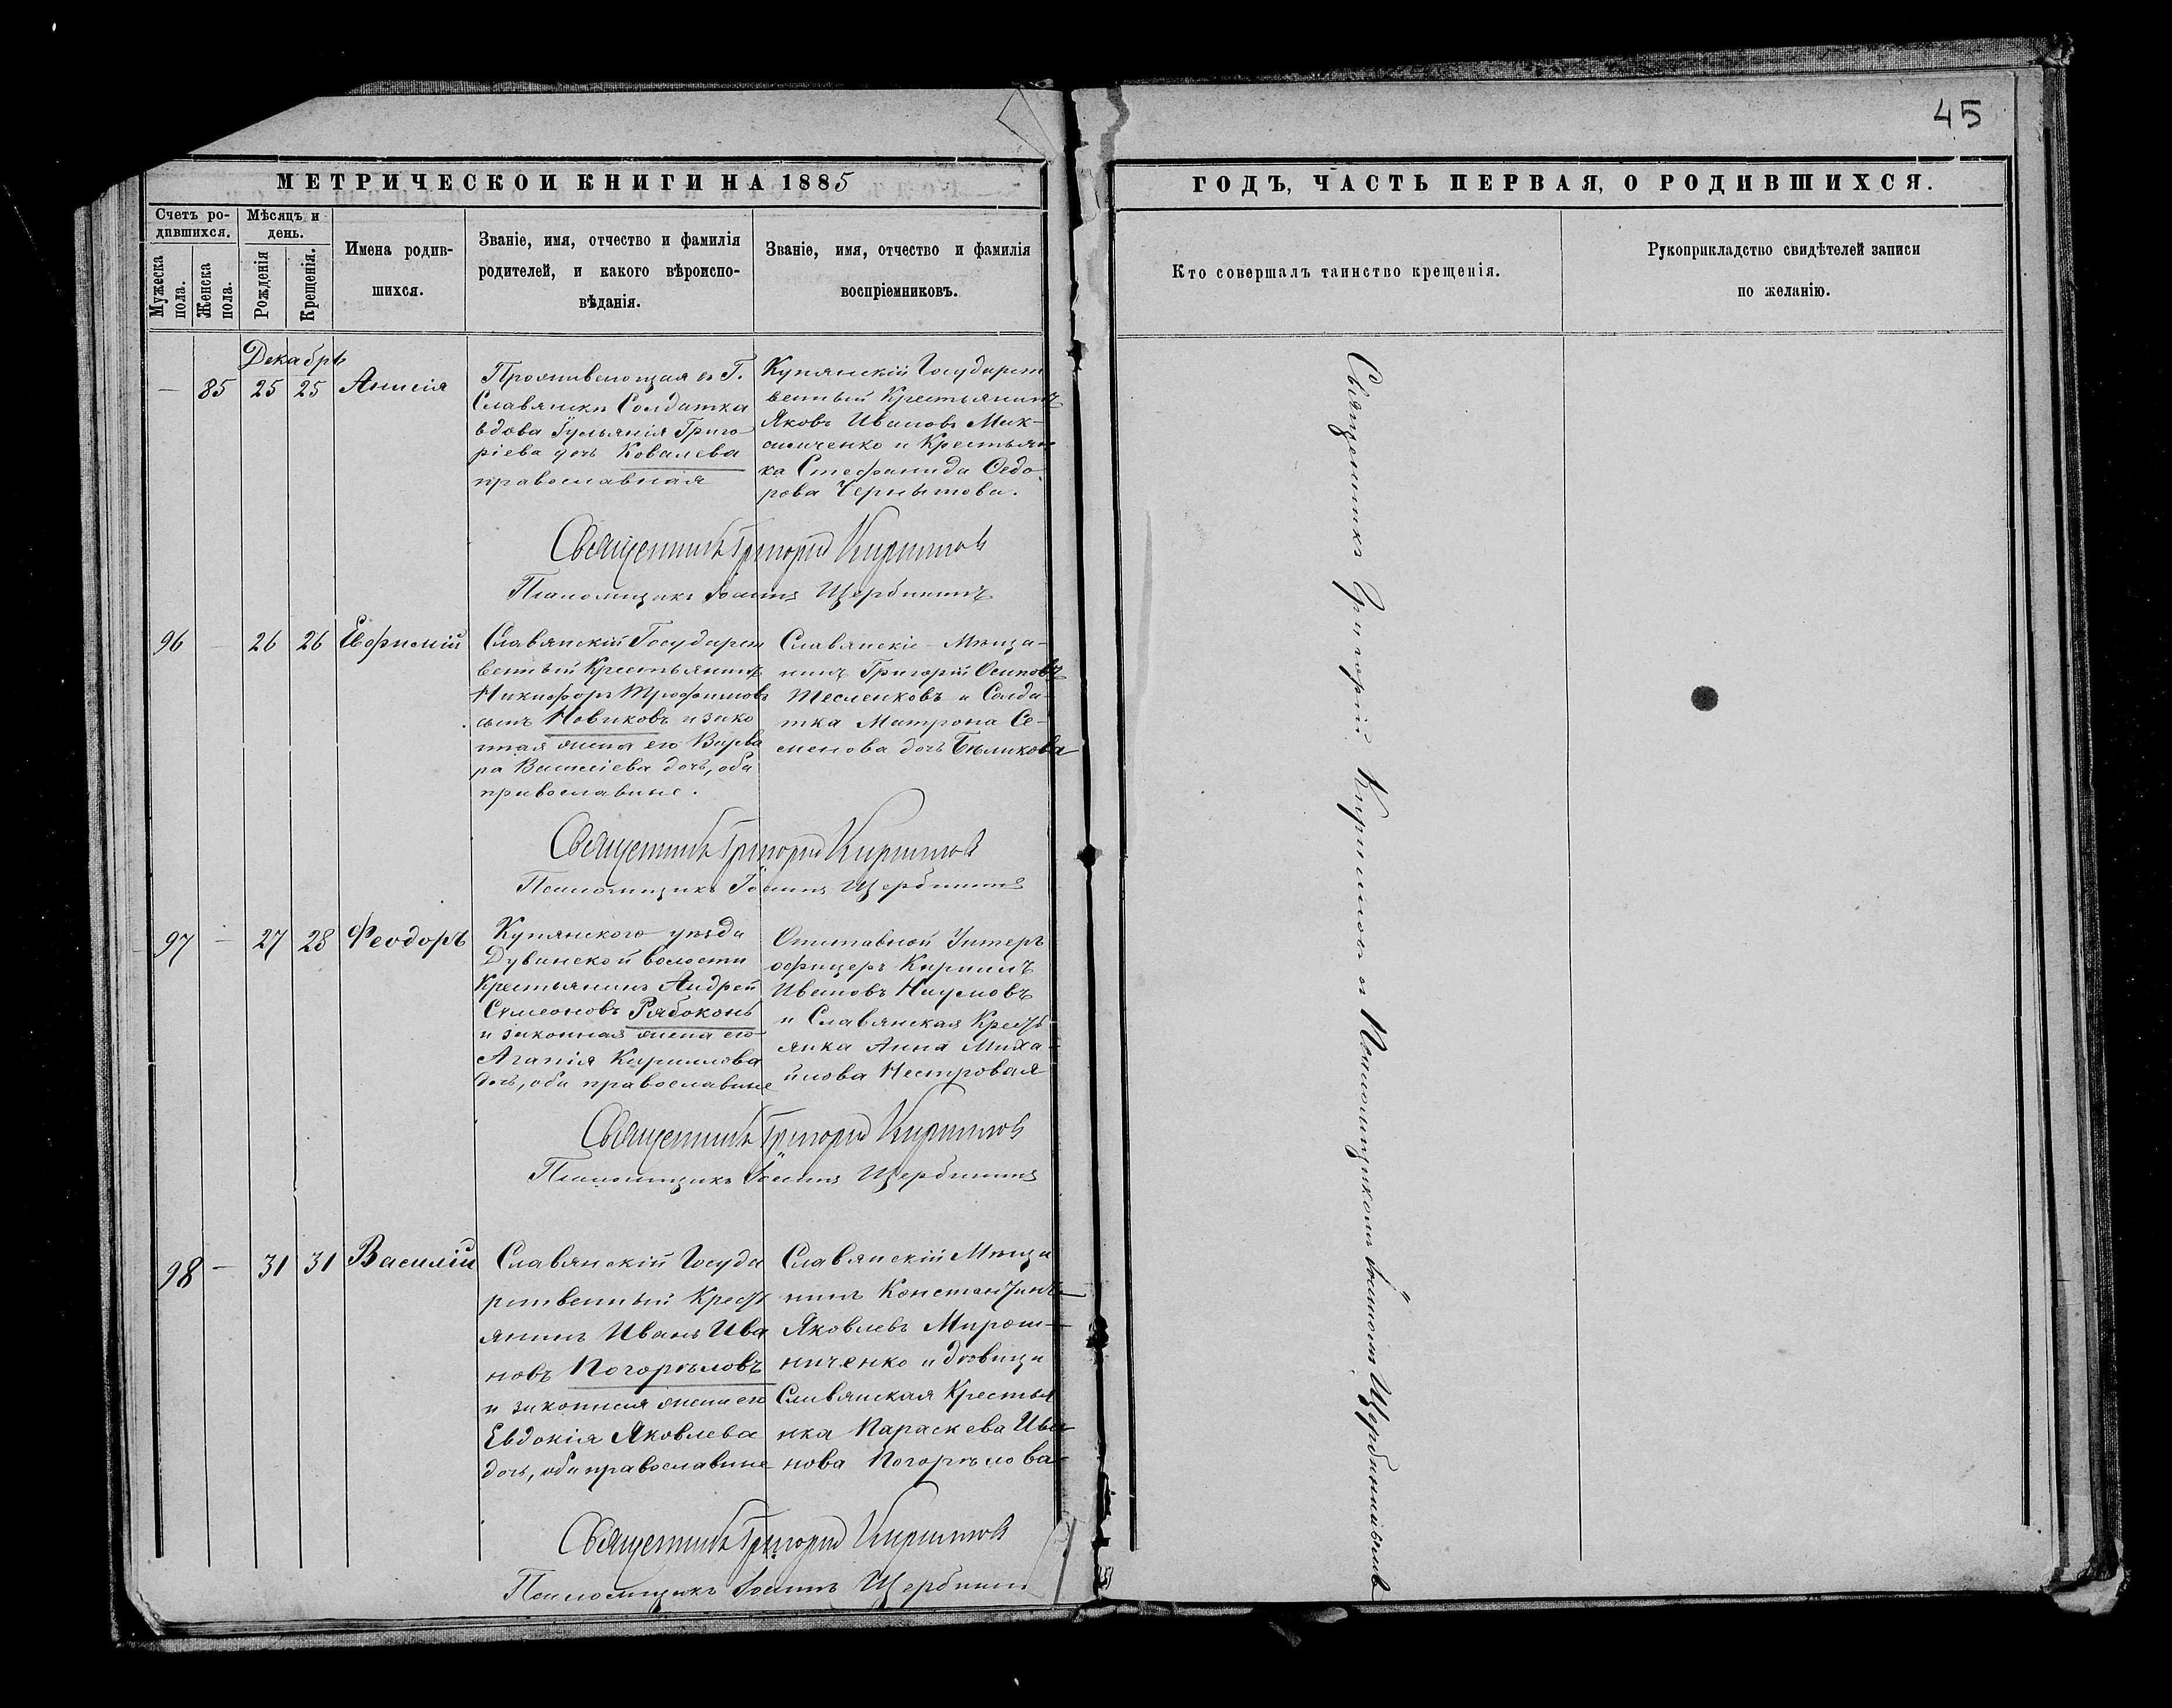 45
МЕТРИЧЕСКОЙ КНИГИ НА 1885
ГОДЪ, ЧАСТЬ ПЕРВАЯ, О РОДИВШИХСЯ.
Счетъ ро-
дившихся.
Мужеска пола.
Женска пола.
Мѣсяцъ и
день.
Рожденія
Крещенія.
Имена родив-
шихся.
Званіе, имя, отчество и фамилія
родителей, и какого вѣроиспо-
вѣданія.
Званіе, имя, отчество и фамилія
воспріемниковъ.
Кто совершалъ таинство крещенія.
Рукоприкладство свидѣтелей записи
по желанію.
Декабрь
— 85 25 25 Анисія
Проживающая въ Г.
Славянскѣ Солдатка
вдова Іульянія Григо
ріева дочь Ковалева
православная
Купянскій Государст
венный Крестьянинъ
Яковъ Ивановъ Мак-
симченко и Крестьян
ка Стефанида Ѳедо
рова Чернытова.
Священникъ Григорій Кириллов
Псаломщикъ Іоаннъ Щербининъ
96 — 26 26 Евфимій
Славянскій Государст
венный Крестьянинъ
Никифоръ Трофимовъ
сынъ Новиковъ и зако
нная жена его Варва
ра Василіева дочь, оба
православные.
Славянскіе Мѣща-
нинъ Григорій Осиповъ
Тесленковъ и Солда-
тка Матрона Се-
менова дочь Бѣликова
Священникъ Григорій Кириллов
Псаломщикъ Іоаннъ Щербининъ
97 — 27 28 Феодоръ
Купянскаго уѣзда
Дуванской волости
Крестьянинъ Андрей
Симеоновъ Рябоконь
и законная жена его
Агапія Кириллова
дочь, оба православные
Отставной Унтеръ
офицеръ Кириллъ
Ивановъ Наумовъ
и Славянская Кресть
янка Анна Миха-
йлова Нестровая
Священникъ Григорій Кириллов
Псаломщикъ Іоаннъ Щербининъ
98 — 31 31 Василій
Славянскій Госуда
рственный Кресть
янинъ Иванъ Ива
новъ Погорѣловъ
и законная жена его
Евдокія Яковлева
дочь, оба православные
Славянскій Мѣща
нинъ Константинъ
Яковлевъ Мирош-
ниченко и дѣвица
Славянская Крестья
нка Параскева Ива
нова Погорѣлова
Священникъ Григорій Кириллов
Псаломщикъ Іоаннъ Щербинин
Священникъ Григорій Кириллов съ Псаломщикомъ Іоанномъ Щербининымъ